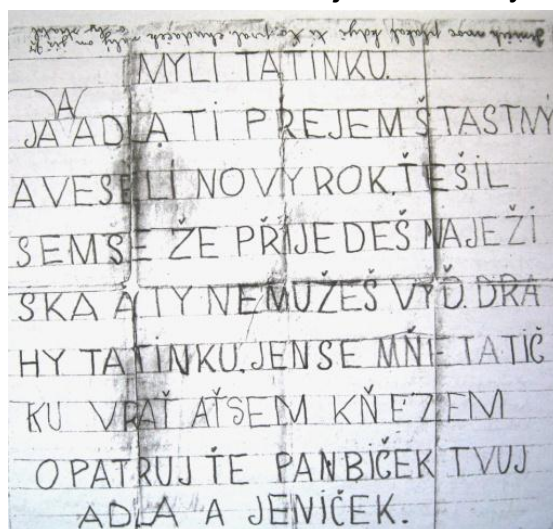 MYLI TATINKU.
A
JA ADLA TI PREJEM ŠTASTNÝ
A VESELÍ NOVY ROK. TĚŠIL
SEM SE ŽE PŘIJEDEŠ NAJEŽÍ
ŠKA A TY NEMUŽEŠ VYĎ. DRA
HY TATINKU. JEN SE MŇE TATIČ
KU VRAŤ AŤ SEM KŇEZEM
OPATRUJ TE PANBIČEK TVUJ
ADLA A JENIČEK.